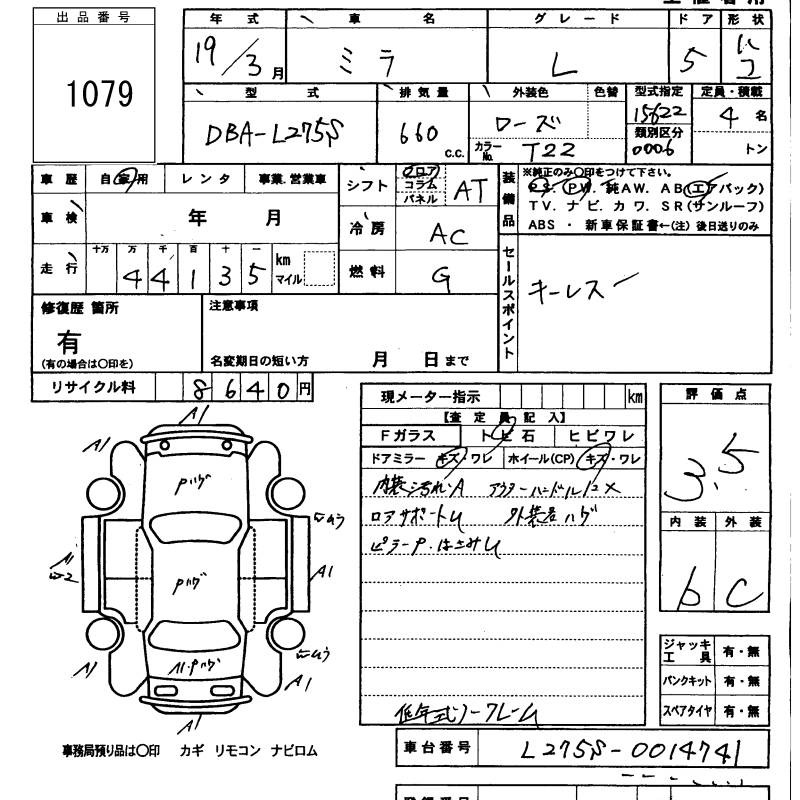 出品番号
1079
年式 車名 グレード ドア 形状
19/3月 ミラ L 5
型式 排気量 外装色 色替 型式指定 定員・積載
DBA-L275S 660 c.c. ローズ 15622 4名
カラーNo. T22 類別区分 0006 トン
車歴 自家用 レンタ 事業.営業車
シフト フロア コラム パネル AT
装備品 ※純正のみ〇印をつけて下さい。
P.S. P.W. 純AW. AB(エアバック)
TV. ナビ. カワ. SR(サンルーフ)
ABS ・ 新車保証書←(注) 後日送りのみ
車検 年 月
冷房 AC
走行 十万 万 千 百 十 一
44135 km マイル
燃料 G
セールスポイント キーレス
修復歴 箇所
有
(有の場合は〇印を)
注意事項
名変期日の短い方 月 日まで
リサイクル料 8640円
現メーター指示 km
【査定員記入】
Fガラス トビ石 ヒビワレ
ドアミラー キズ・ワレ ホイール(CP) キズ・ワレ
内装汚れA アウターハンドル
ロアサポートU 外装色ハゲ
ピラーP.はさみU
評価点
3.5
内装 外装
b C
A1
A1
Pハゲ
A1
Pハゲ
A1
A1
A1
A1
ジャッキ工具 有・無
パンクキット 有・無
スペアタイヤ 有・無
事務局預り品は〇印 カギ リモコン ナビロム
車台番号 L275S-0014741